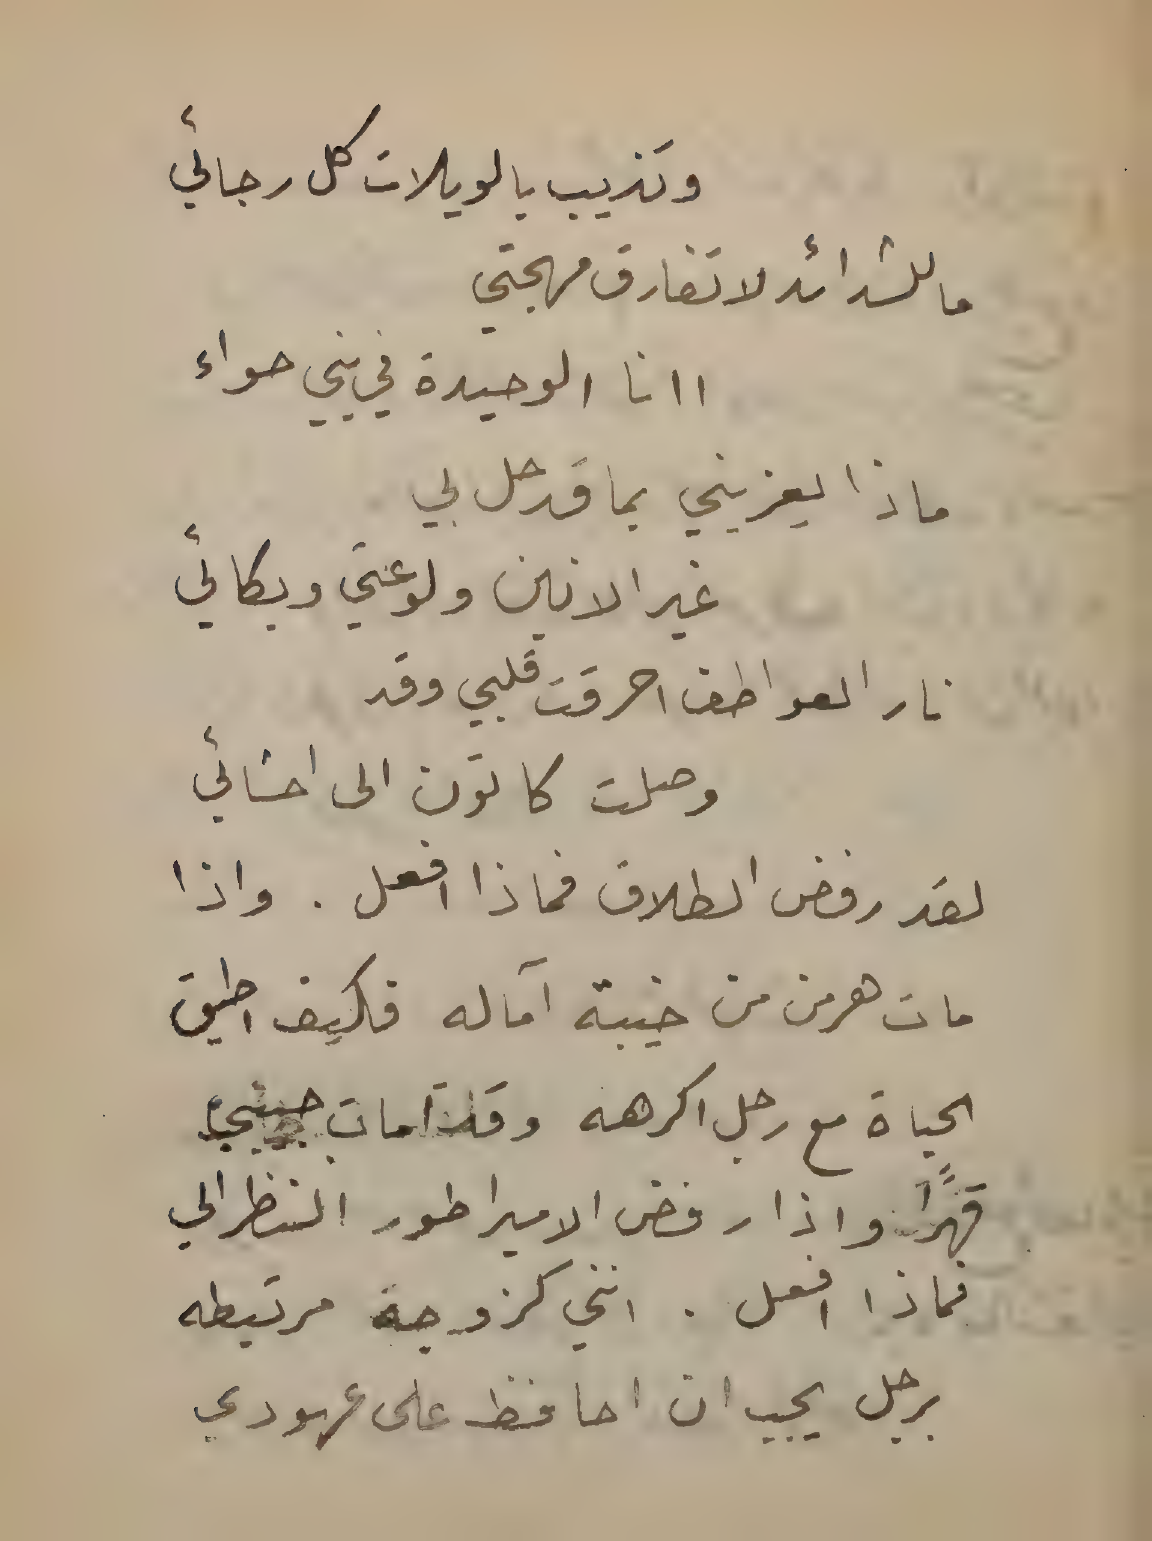 وتذيب بالويلات كل رجائي
ما للشدائد لا تفارق مهجتي
اانا الوحيدة في بني حواء
ماذا يعزيني بما قد حل بي
غير الانين ولوعتي وبكائي
نار العواطف احرقت قلبي وقد
وصلت كاتون الى احشائي
لقد رفض الطلاق فماذا افعل . واذا
مات هرمن من خيبة آماله فكيف اطيق
الحياة مع رجل اكرهه وقد امات حبيبي
قهرًا واذا رفض الامبراطور النظر الي
فماذا افعل . انني كزوجة مرتبطه
برجل يجب ان احافظ على عهودي